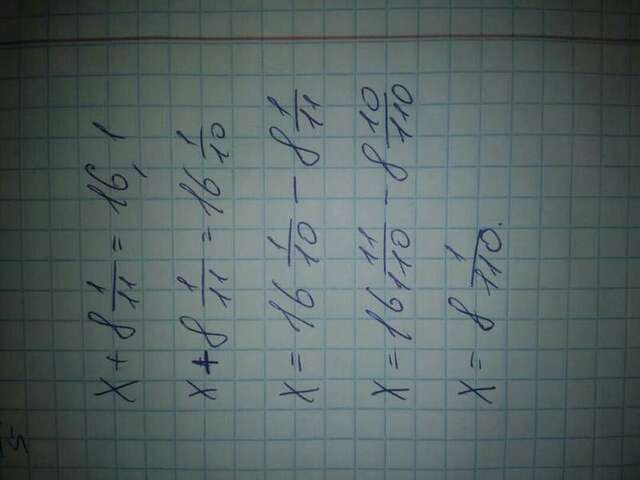 x + 8 1/11 = 16,1
x + 8 1/11 = 16 1/10
x = 16 1/10 - 8 1/11
x = 16 11/110 - 8 10/110
x = 8 1/110.